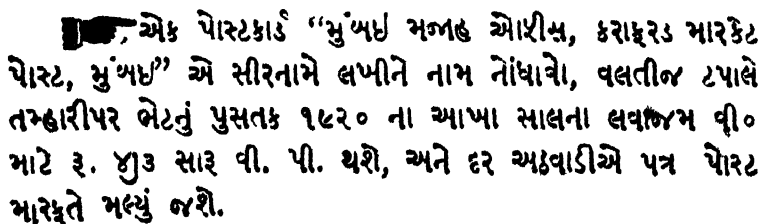 ☛, એક પોસ્ટકાર્ડ “મુંબઇ મજાહ ઓફીસ, કરાફરડ મારકેટ
પોસ્ટ, મુંબઇ” એ સીરનામે લખીને નામ નોંધાવો, વલતીજ ટપાલે
તમ્હારીપર ભેટનું પુસ્તક ૧૯૨૦ ના આખા સાલના લવાજમ વી૦
માટે રૂ. ૪ાા૩ સારૂ વી. પી. થશે, અને દર અઠવાડીએ પત્ર પોસ્ટ
મારફતે મલ્યું જશે.